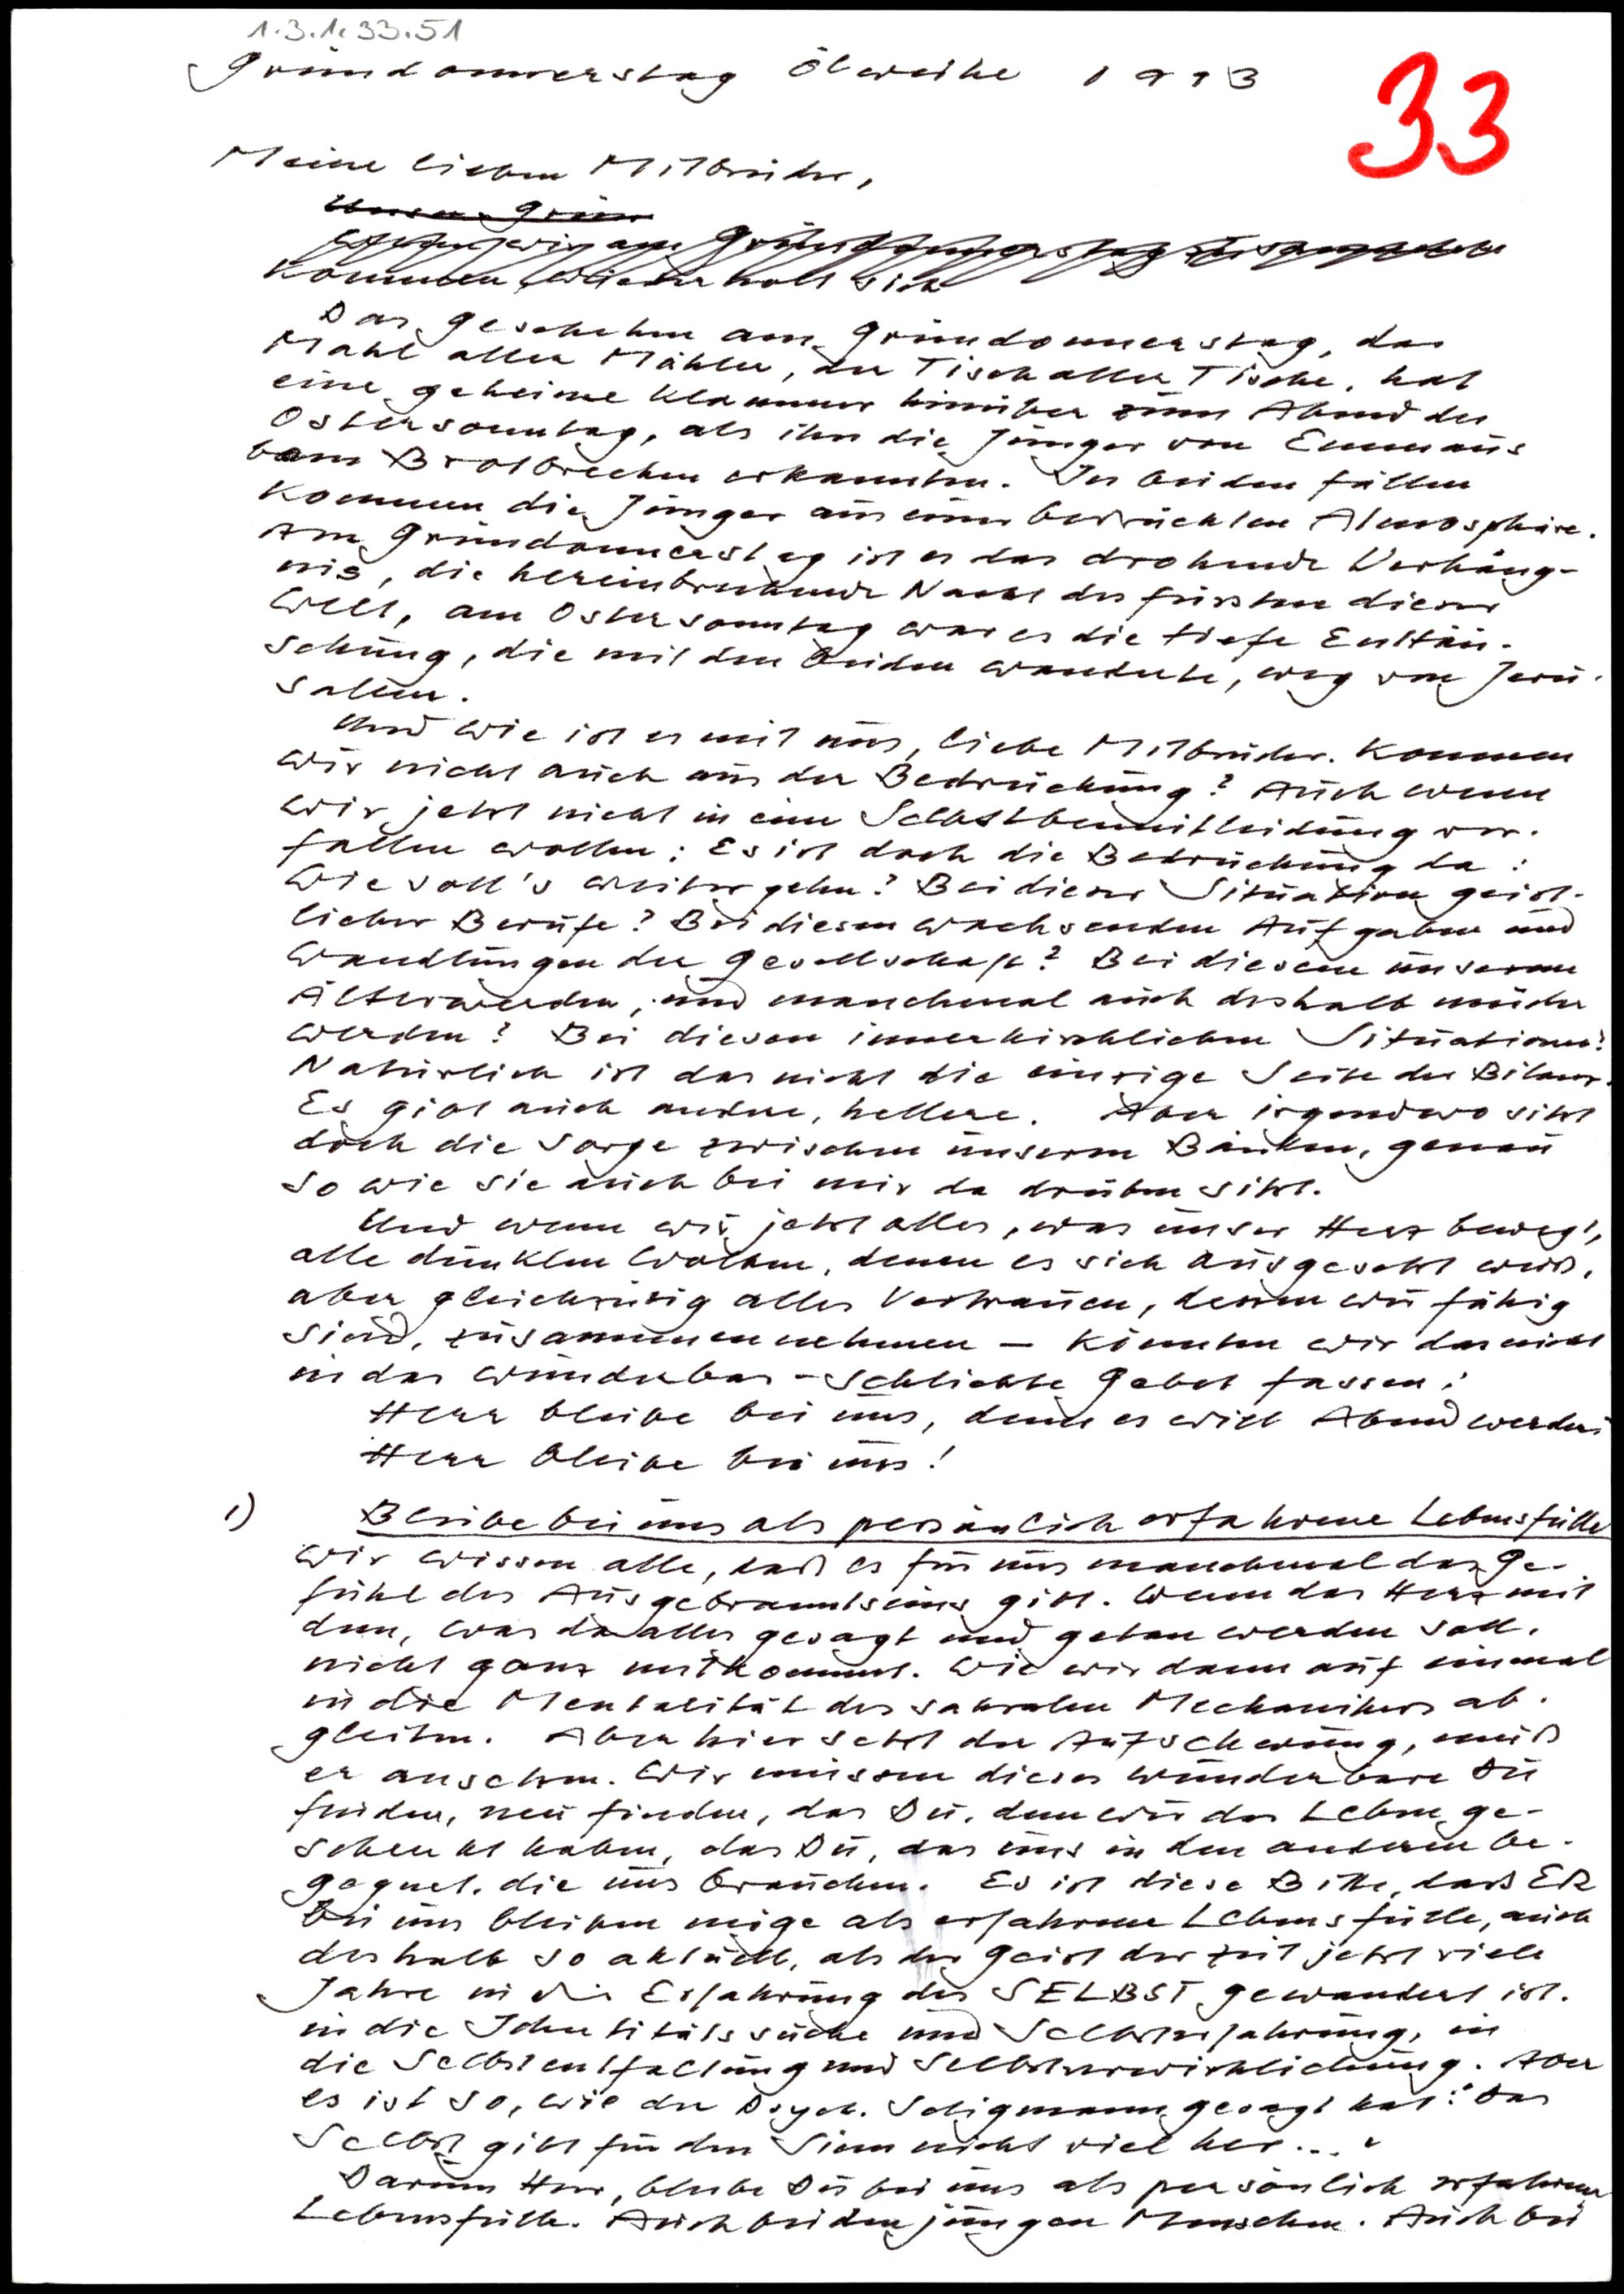 1.3.1.33.51
Gründonnerstag Ölweihe 1993
33
Meine lieben Mitbrüder,
Unser Grün
Wenn wir am Gründonnerstag
kommen, wiederholt sich
Das Geschehen am Gründonnerstag, das
Mahl aller Mähler, der Tisch aller Tische, hat
eine geheime Klammer hinüber zum Abend des
Ostersonntag, als ihn die Jünger von Emmaus
beim Brotbrechen erkannten. In beiden Fällen
kommen die Jünger aus einer bedrückten Atmosphäre.
Am Gründonnerstag ist es das drohende Verhäng-
nis, die hereinbrechende Nacht des Fürsten dieser
Welt, am Ostersonntag war es die tiefe Enttäu-
schung, die mit den Beiden wanderte, weg von Jeru-
salem.
Und wie ist es mit uns, liebe Mitbrüder. Kommen
wir nicht auch aus der Bedrückung? Auch wenn
wir jetzt nicht in eine Selbstbemitleidung ver-
fallen wollen: Es ist doch die Bedrückung da:
Wie soll's weitergehn? Bei dieser Situation geist-
licher Berufe? Bei diesen wachsenden Aufgaben und
Wandlungen der Gesellschaft? Bei diesem unserem
Älterwerden, und manchmal auch deshalb müder
werden? Bei diesen innerkirchlichen Situationen?
Natürlich ist das nicht die einzige Seite der Bilanz.
Es gibt auch andere, hellere. Aber irgendwo sitzt
doch die Sorge zwischen unseren Bänken, genau
so wie sie auch bei mir da drüben sitzt.
Und wenn wir jetzt alles, was unser Herz bewegt,
alle dunklen Wolken, denen es sich ausgesetzt weiß,
aber gleichzeitig alles Vertrauen, dessen wir fähig
sind, zusammennehmen – könnten wir das nicht
in das wunderbar-schlichte Gebet fassen:
Herr bleibe bei uns, denn es will Abend werden
Herr bleibe bei uns!
1) Bleibe bei uns als persönlich erfahrene Lebensfülle
Wir wissen alle, daß es für uns manchmal das Ge-
fühl des Ausgebranntseins gibt. Wenn das Herz mit
dem, was da alles gesagt und getan werden soll,
nicht ganz mitkommt. Wie wir dann auf einmal
in die Mentalität des sakralen Mechanikers ab-
gleiten. Aber hier setzt der Aufschwung, muß
er ansetzen. Wir müssen dieses wunderbare Du
finden, neu finden, das Du, dem wir das Leben ge-
schenkt haben, das Du, das uns in den anderen be-
gegnet, die uns brauchen. Es ist diese Bitte, daß ER
bei uns bleiben möge als erfahrene Lebensfülle, auch
deshalb so aktuell, als der Geist der Zeit jetzt viele
Jahre in die Erfahrung des SELBST gewandert ist.
in die Identitätssuche und Selbsterfahrung, in
die Selbstentfaltung und Selbstverwirklichung. Aber
es ist so, wie der Psych. Seligmann gesagt hat: "Das
Selbst gibt für den Sinn nicht viel her..."
Darum Herr, bleibe Du bei uns als persönlich erfahrene
Lebensfülle. Auch bei den jungen Menschen. Auch bei